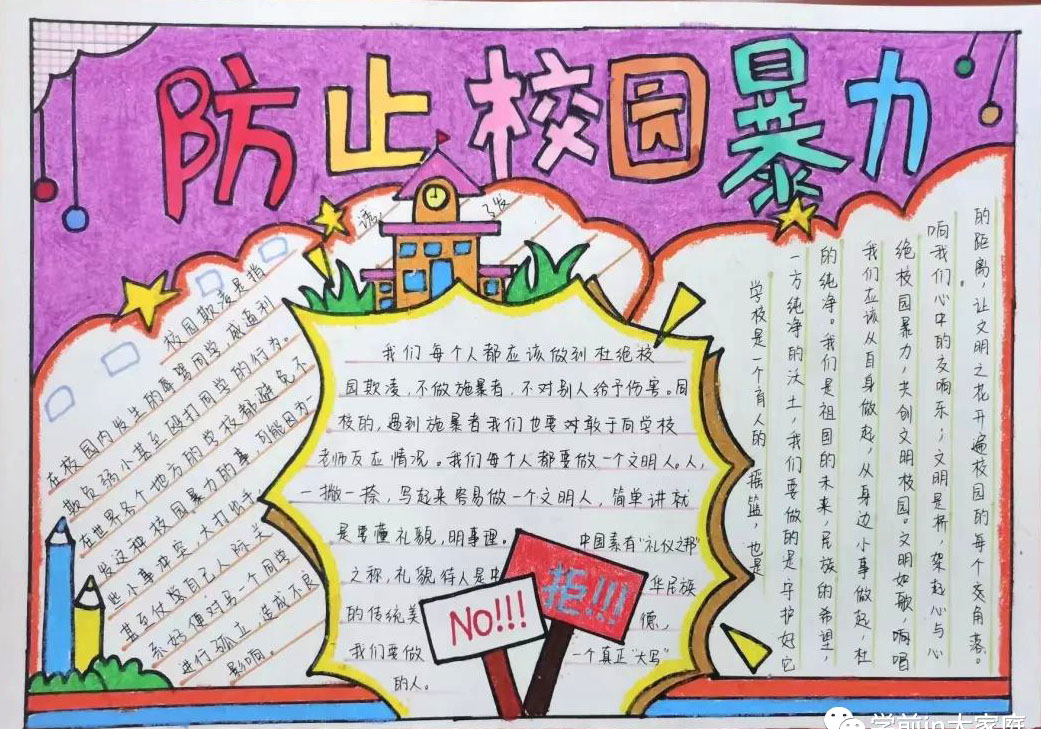 防止校园暴力
诱
了发
校园欺凌是指
在校园内发生的辱骂同学或通过
欺负弱小甚至殴打同学的行为。
在世界各个地方的学校都避免不
发这种校园暴力的事,可能因为
些小事冲突,大打出手,
甚至仗势自己人际关
系好便对另一个同学
进行孤立,造成不良
影响。
我们每个人都应该做到杜绝校
园欺凌,不做施暴者,不对别人给予伤害。同
校的,遇到施暴者我们也要对敢于向学校
老师反应情况。我们每个人都要做一个文明人。人,
一撇一捺,写起来容易做一个文明人,简单讲就
是要懂礼貌,明事理。中国素有“礼仪之邦”
之称,礼貌待人是中华民族
的传统美德,
我们要做一个真正“大写”
的人。
NO!!!
拒!!!
学校是一个育人的摇篮,也是
一方纯净的沃土,我们要做的是守护好它
的纯净。我们是祖国的未来,民族的希望,
我们应该从自身做起,从身边小事做起,杜
绝校园暴力,共创文明校园。文明如歌,响唱
响我们心中的交响乐;文明是桥,架起心与心
的距离,让文明之花开遍校园的每个角落。
学前in大家庭